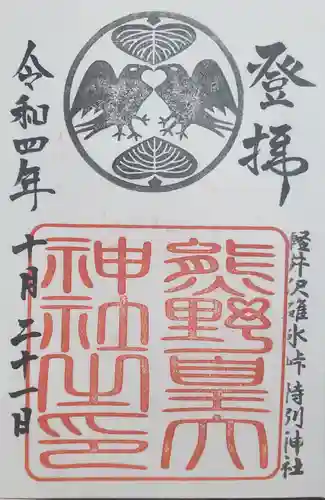 登拝
軽井沢碓氷峠特別神社
熊野皇大
神社之印
令和四年
十月二十一日